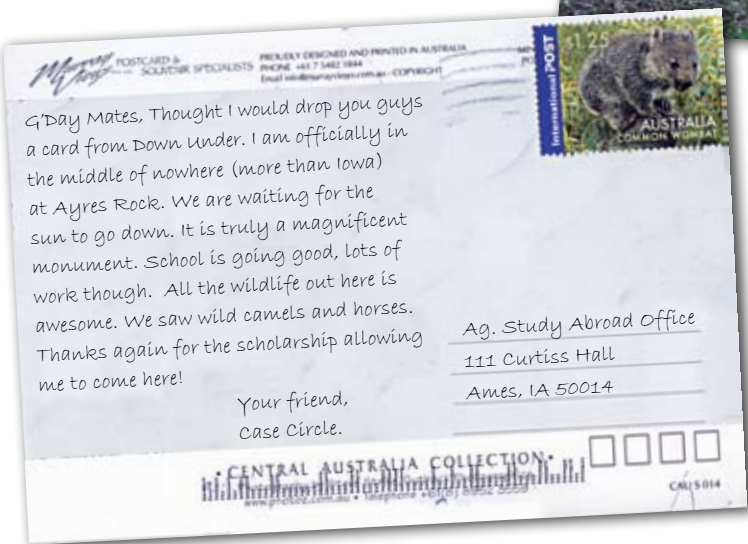 Murray Views
POSTCARD &
SOUVENIR SPECIALISTS
PROUDLY DESIGNED AND PRINTED IN AUSTRALIA
PHONE +61 7 5482 1844
COPYRIGHT
International POST
$1.25
AUSTRALIA
COMMON WOMBAT
G'Day Mates, Thought I would drop you guys
a card from Down Under. I am officially in
the middle of nowhere (more than Iowa)
at Ayres Rock. We are waiting for the
sun to go down. It is truly a magnificent
monument. School is going good, lots of
work though. All the wildlife out here is
awesome. We saw wild camels and horses.
Thanks again for the scholarship allowing
me to come here!
Your friend,
Case Circle.
Ag. Study Abroad Office
111 Curtiss Hall
Ames, IA 50014
• CENTRAL AUSTRALIA COLLECTION •